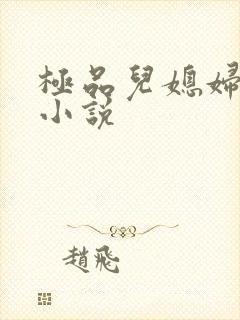 極品兒媳婦
小說
趙飛